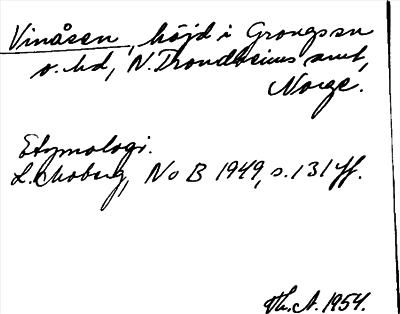 Vinåsen, höjd i Grongs sn
o. hd, N. Trondheims amt,
Norge.
Etymologi.
L. Moberg, NoB 1949, s. 131 ff.
Th. A. 1954.